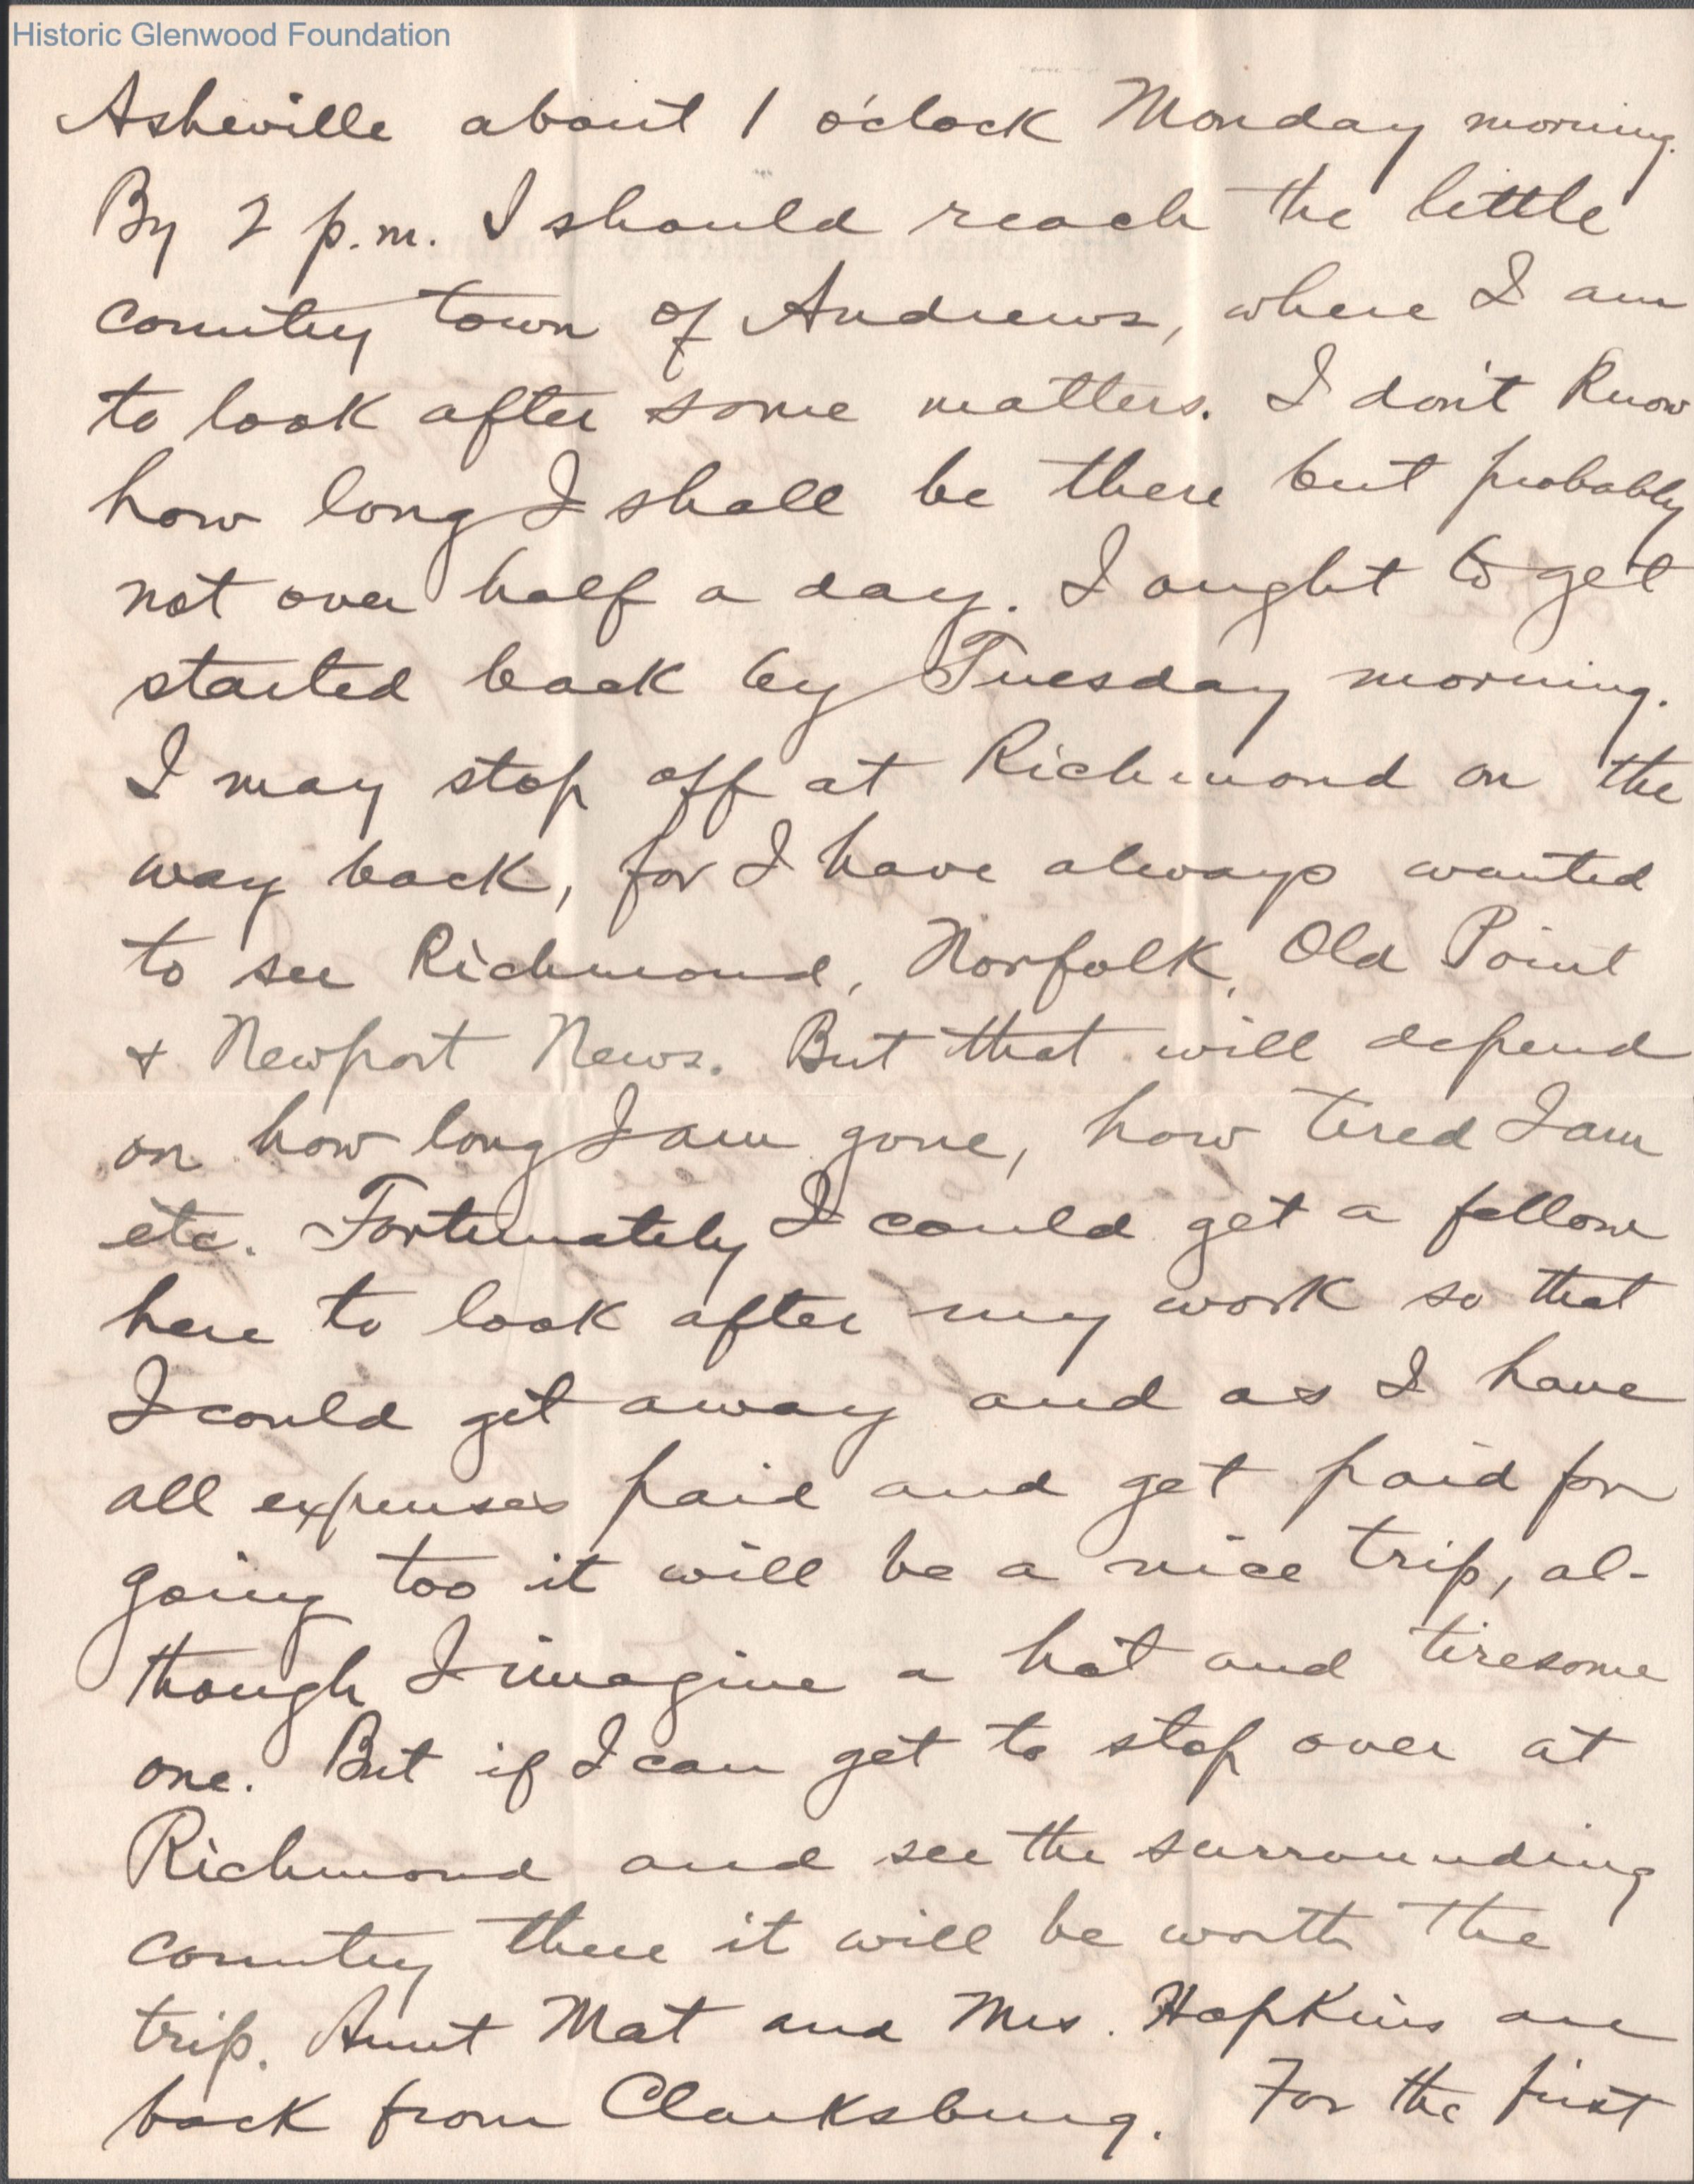 Historic Glenwood Foundation
Asheville about 1 o'clock Monday morning.
By 2 p.m. I should reach the little
country town of Andrews, where I am
to look after some matters. I don't know
how long I shall be there but probably
not over half a day. I ought to get
started back by Tuesday morning.
I may stop off at Richmond on the
way back, for I have always wanted
to see Richmond, Norfolk, Old Point
& Newport News. But that will depend
on how long I am gone, how tired I am
etc. Fortunately I could get a fellow
here to look after my work so that
I could get away and as I have
all expenses paid and get paid for
going too it will be a nice trip, al-
though I imagine a hot and tiresome
one. But if I can get to stop over at
Richmond and see the surrounding
country there it will be worth the
trip. Aunt Mat and Mrs. Hopkins are
back from Clarksburg. For the first